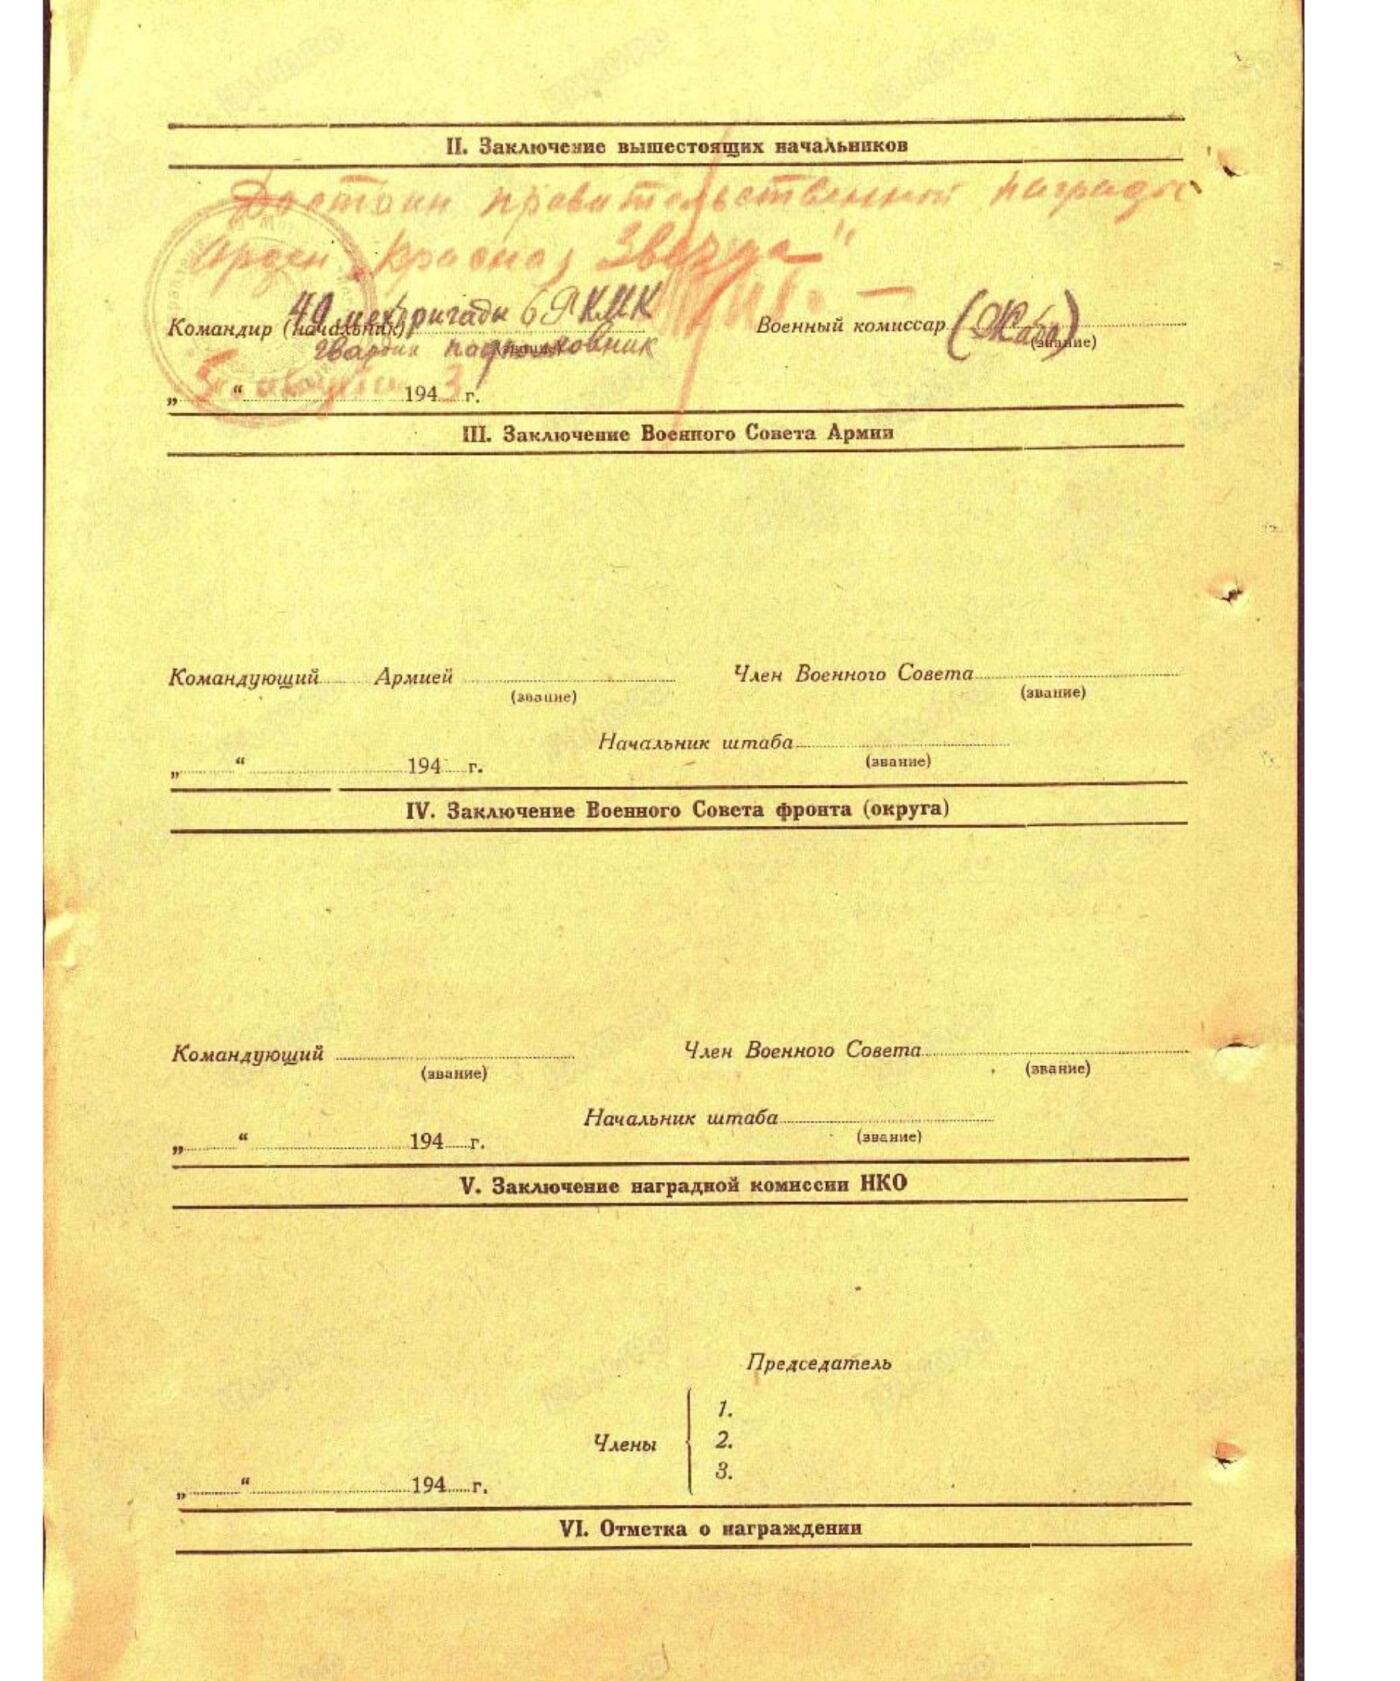 II. Заключение вышестоящих начальников
Достоин правительственной награды
Орден „Красная Звезда"
49 мехбригады 6
Командир (начальник) Военный комиссар (звание)
гвардии подполковник
5 " августа 1943 г.
III. Заключение Военного Совета Армии
Командующий Армией Член Военного Совета
(звание) (звание)
Начальник штаба
(звание)
„ “ 194 г.
IV. Заключение Военного Совета фронта (округа)
Командующий Член Военного Совета
(звание) (звание)
Начальник штаба
(звание)
„ “ 194 г.
V. Заключение наградной комиссии НКО
Председатель
1.
Члены 2.
3.
„ “ 194 г.
VI. Отметка о награждении